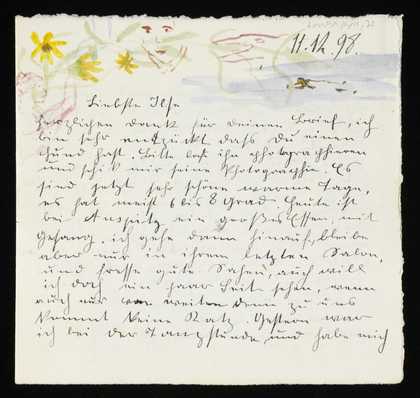 11.12.98.
Liebste Ilse
herzlichen dank für deinen Brief, ich
bin sehr entzückt dass Du einen
Hund hast. Bitte lass ihn photographieren
und schik mir seine Photographie. Es
sind jetzt sehr schöne warme Tage,
es hat meist 6 bis 8 Grad. Heute ist
bei Auspitz ein grosses Essen, mit
Gesang. ich gehe dann hinauf, bleibe
aber nur in ihrem letzten Salon,
und fresse gute Sachen, auch will
ich doch ein paar Leit sehen, wenn
auch nur von weiten denn zu uns
kommt keine Katz. Gestern war
ich bei der Tanzstunde und habe mich